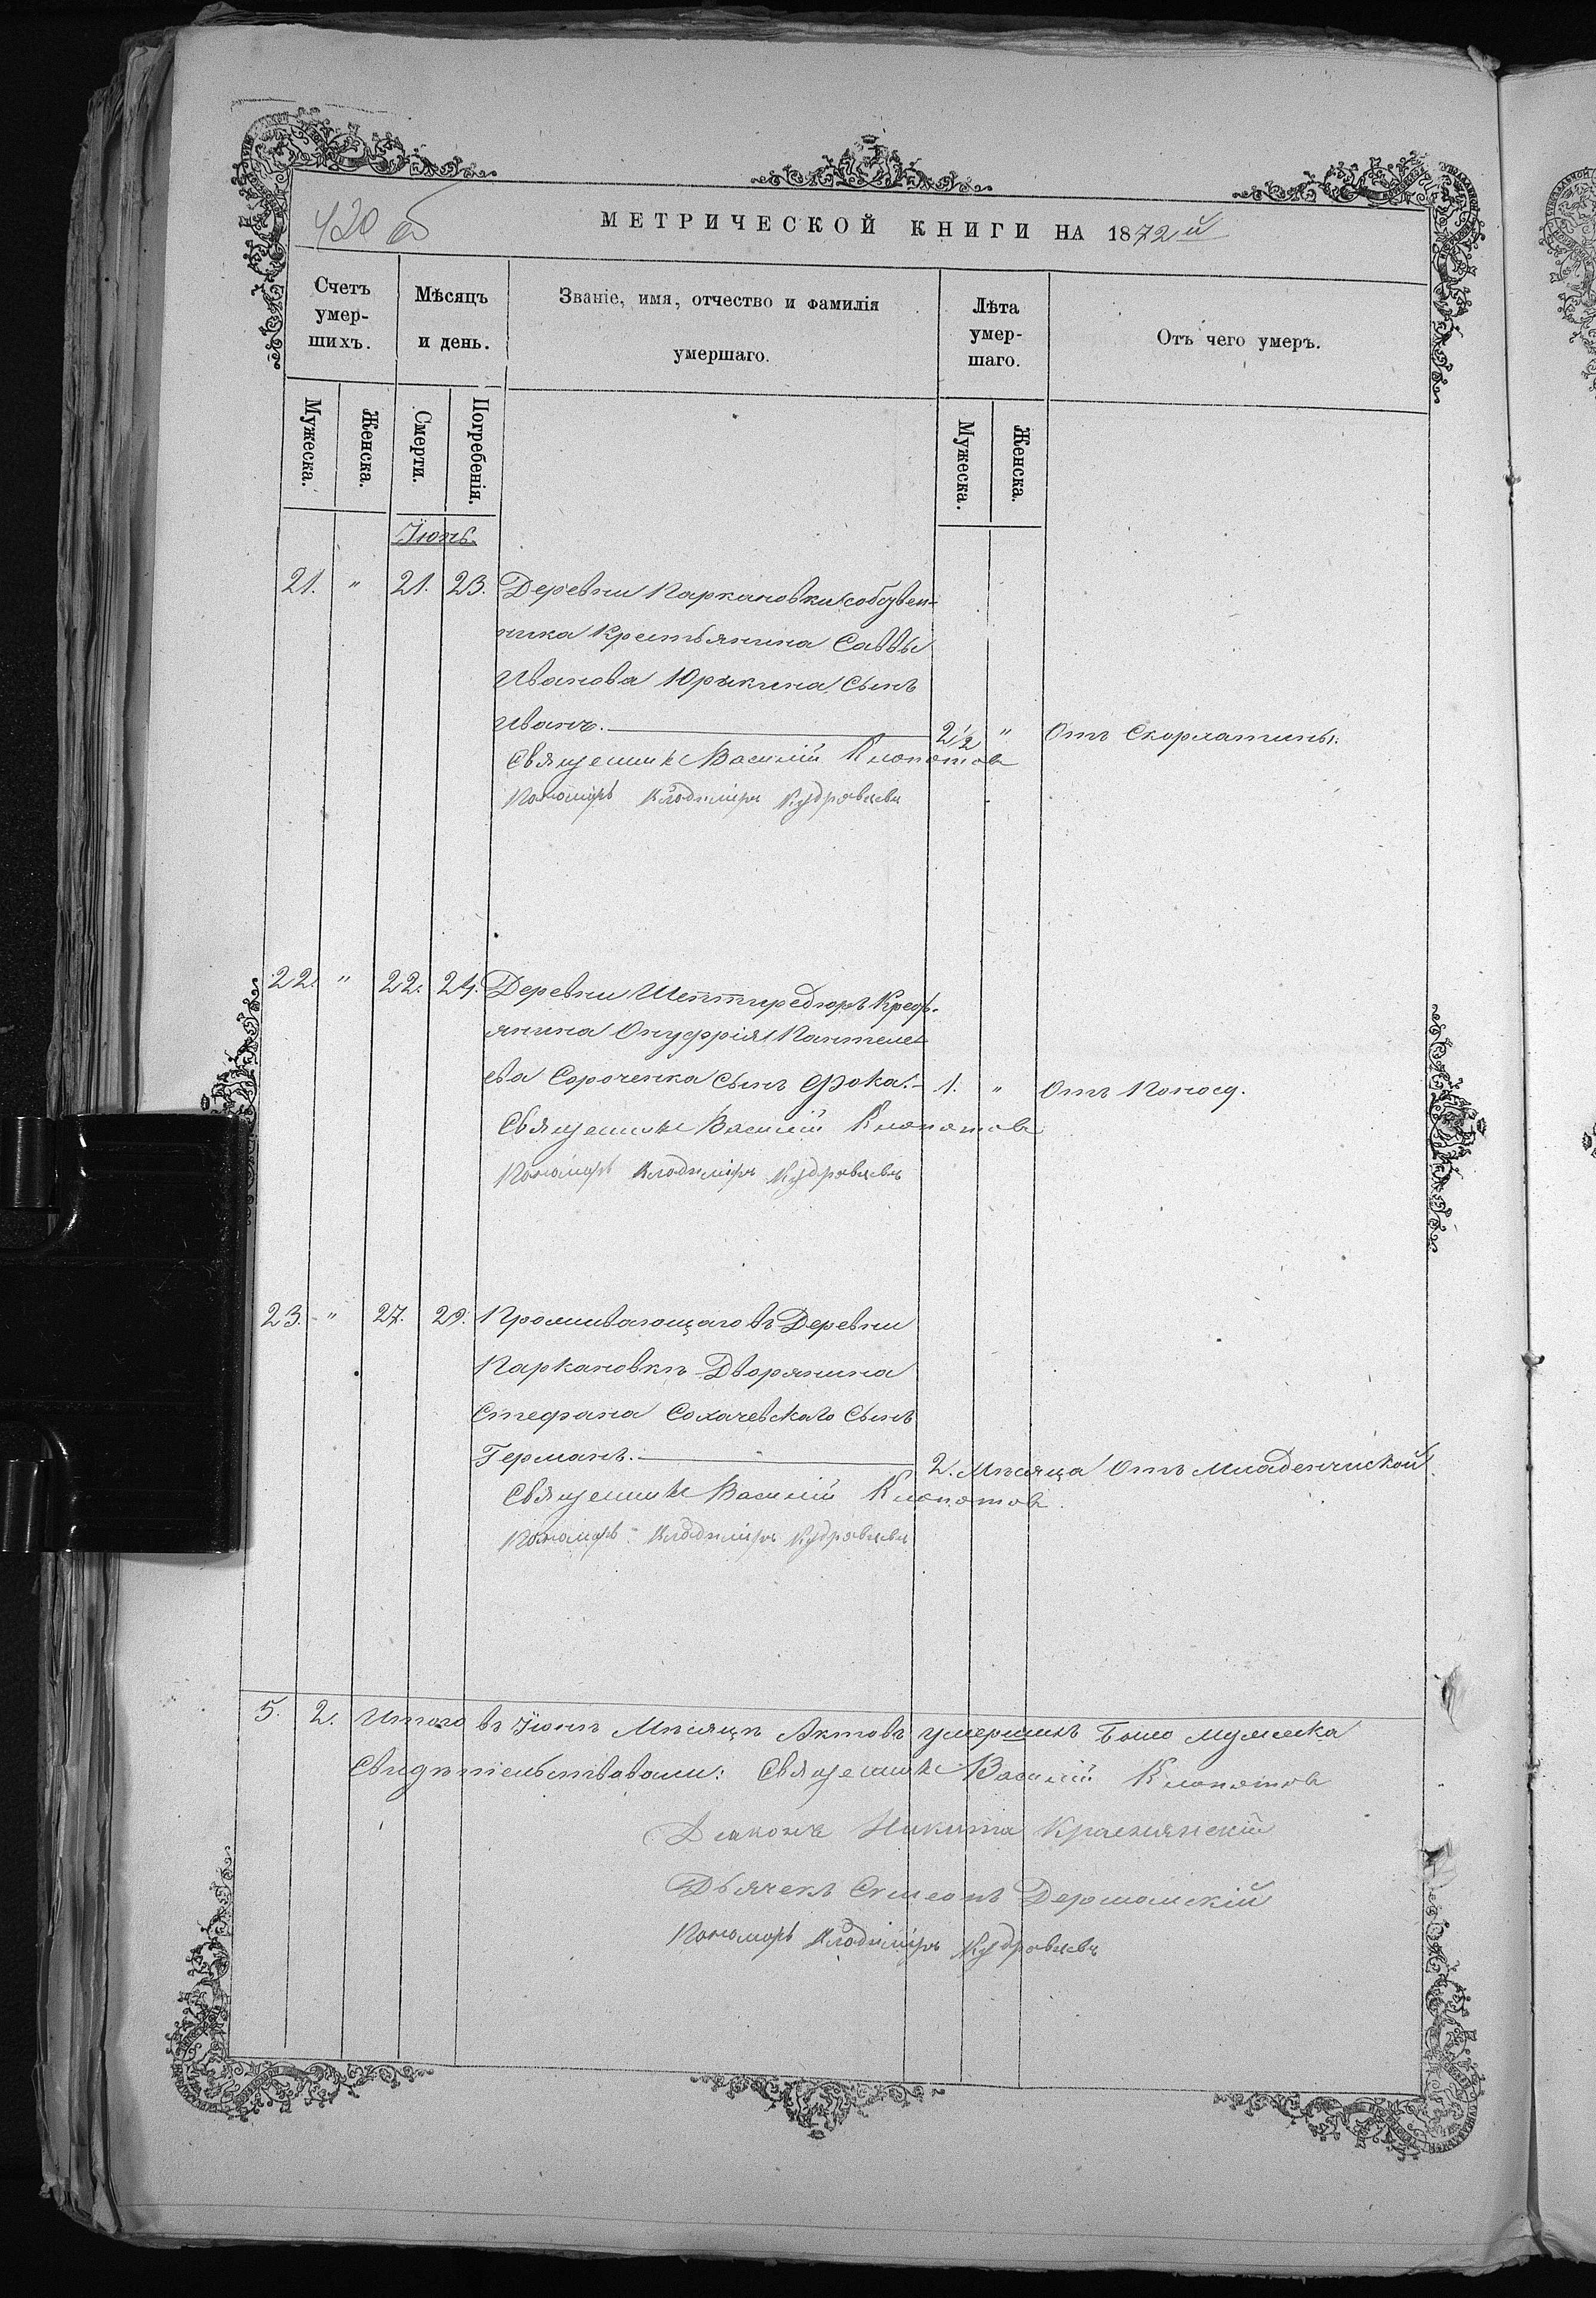 420 об
МЕТРИЧЕСКОЙ КНИГИ НА 1872й
Счетъ умер-шихъ.
Мѣсяцъ и день.
Званіе, имя, отчество и фамилія умершаго.
Лѣта умер-шаго.
Отъ чего умеръ.
Мужеска.
Женска.
Смерти.
Погребенія.
Мужеска.
Женска.
Іюнь.
21. " 21. 23. Деревни Паркановки собствен-
ника Крестьянина Саввы
Иванова Юрикина Сынъ
Иванъ. 2 1/2 " Отъ Скорлатины.
Священникъ Василій Клопотов
Пономарь Владиміръ Кудрявцевъ
22. " 22. 24. Деревни Шептиредюръ Крест-
янина Онуфрія Пантеле-
ева Сороченка Сынъ Фока. 1. " Отъ Поносу.
Священникъ Василій Клопотов
Пономарь Владиміръ Кудрявцевъ
23. " 27. 29. Проживающаго въ Деревни
Паркановкѣ Дворянина
Стефана Сохачевскаго Сынъ
Германъ. 2. Мѣсяца Отъ Младенческой.
Священникъ Василій Клопотов.
Пономарь Владиміръ Кудрявцевъ
5. 2. Итого въ Іюнѣ Мѣсяцѣ Актовъ умершихъ Было мужеска
Свидѣтельствовали: Священникъ Василій Клопотов
Діаконъ Никита
Дьячекъ Симеонъ
Пономарь Владиміръ Кудрявцевъ